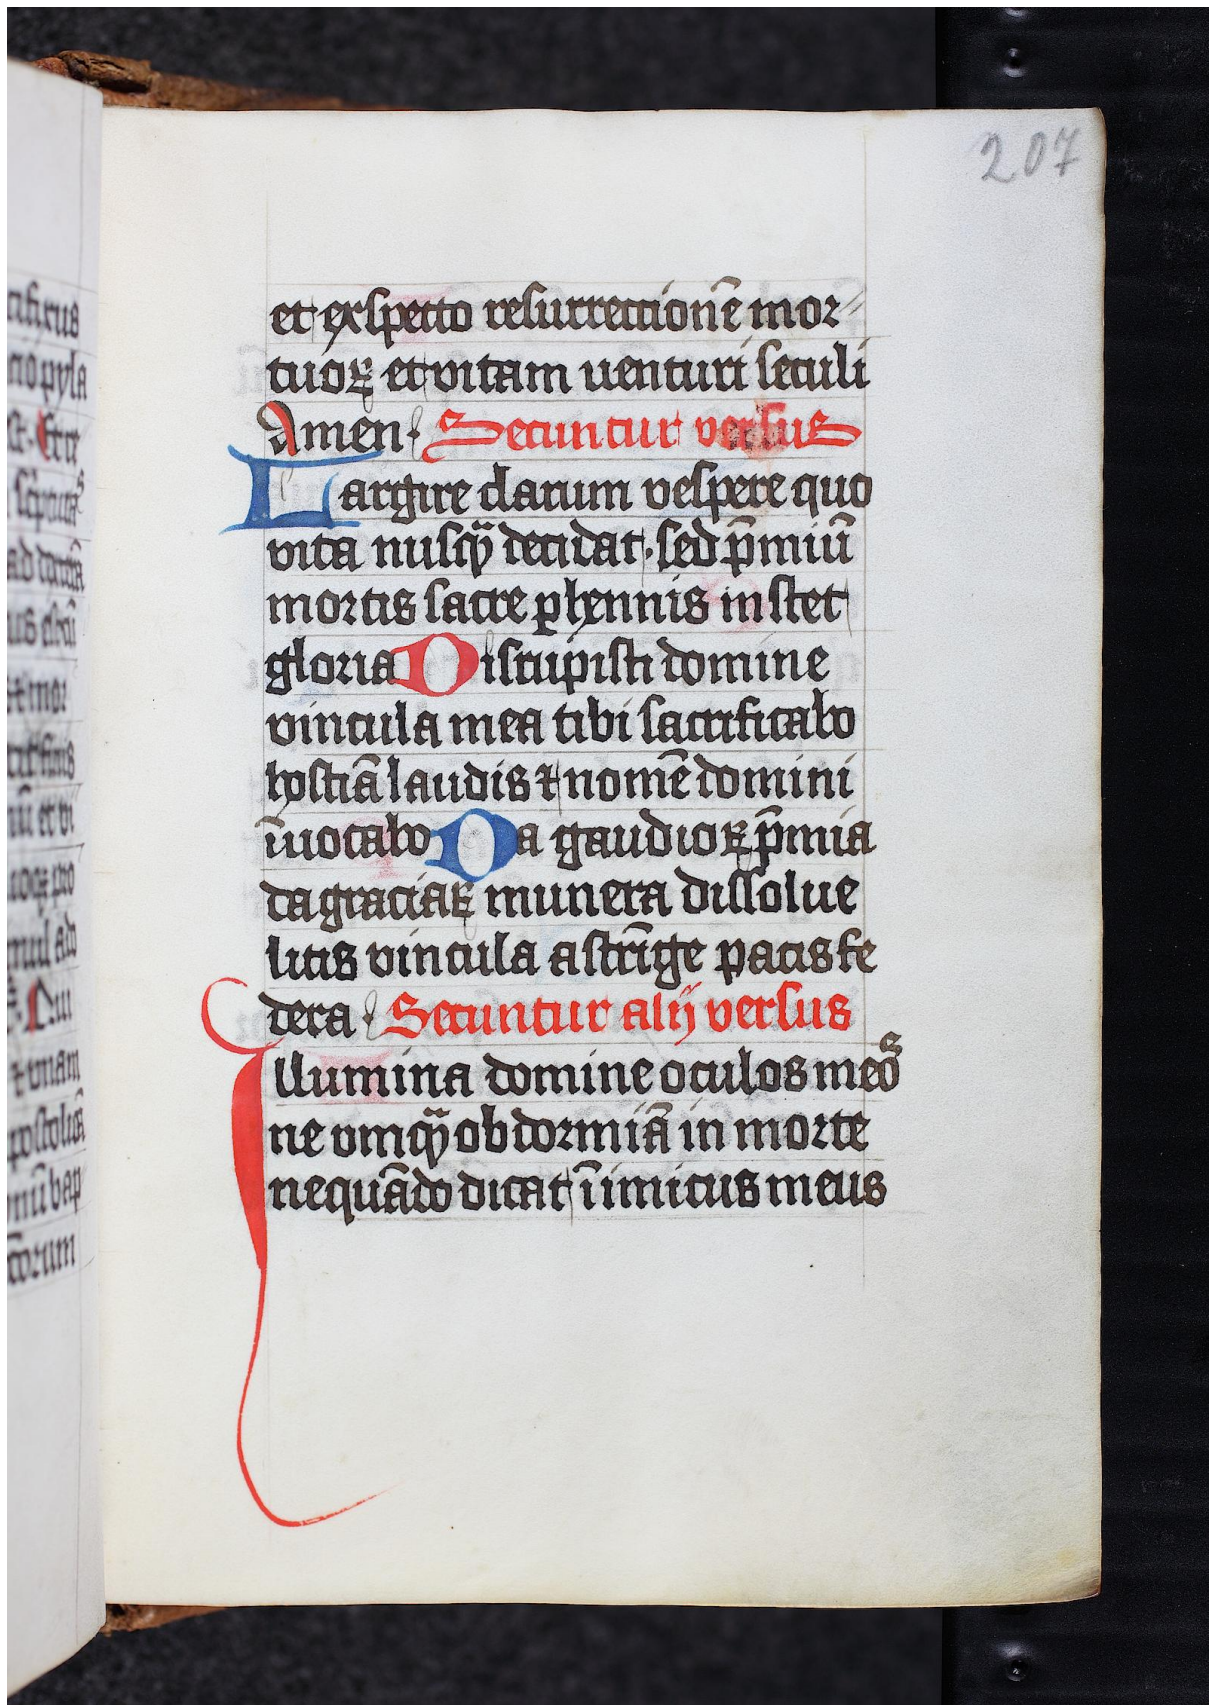 207
et exspecto resurrectionē mor-
tuoꝝ et vitam uenturi seculi
Amen Secuntur versus
Largire clarum vespere quo
vita nusqᷓ decidat. sed p̄miū
mortis sacre ꝑhennis instet
gloria Discupisti domine
vincula mea tibi sacrificabo
hostiā laudis ⁊ nomē domini
īuocabo Da gaudioꝝ p̄mia
da graciaꝝ munera dissolue
litis vincula astrīge pacis fe
dera Secuntur alij versus
Illumina domine oculos meos
ne vmqᷓ obdormiā in morte
nequādo dicat īimicus meus